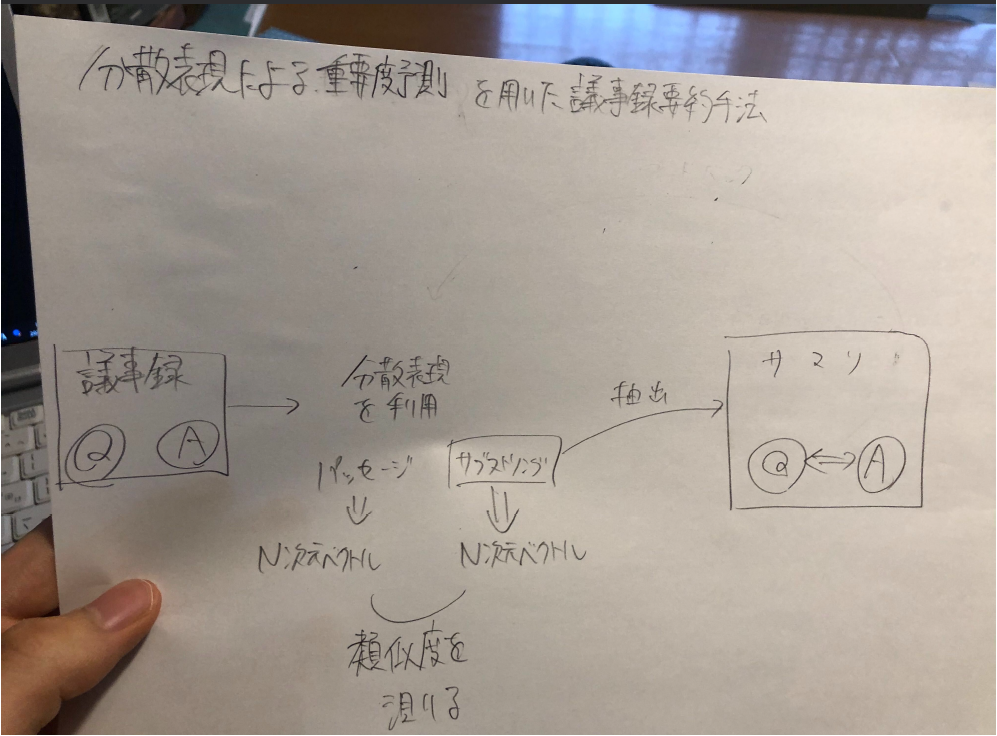 分散表現による重要度予測を用いた議事録要約手法
議事録
Q A
分散表現
を利用
パッセージ
サブストリング
N次元ベクトル
N次元ベクトル
類似度を
測りる
抽出
サマリ
Q A